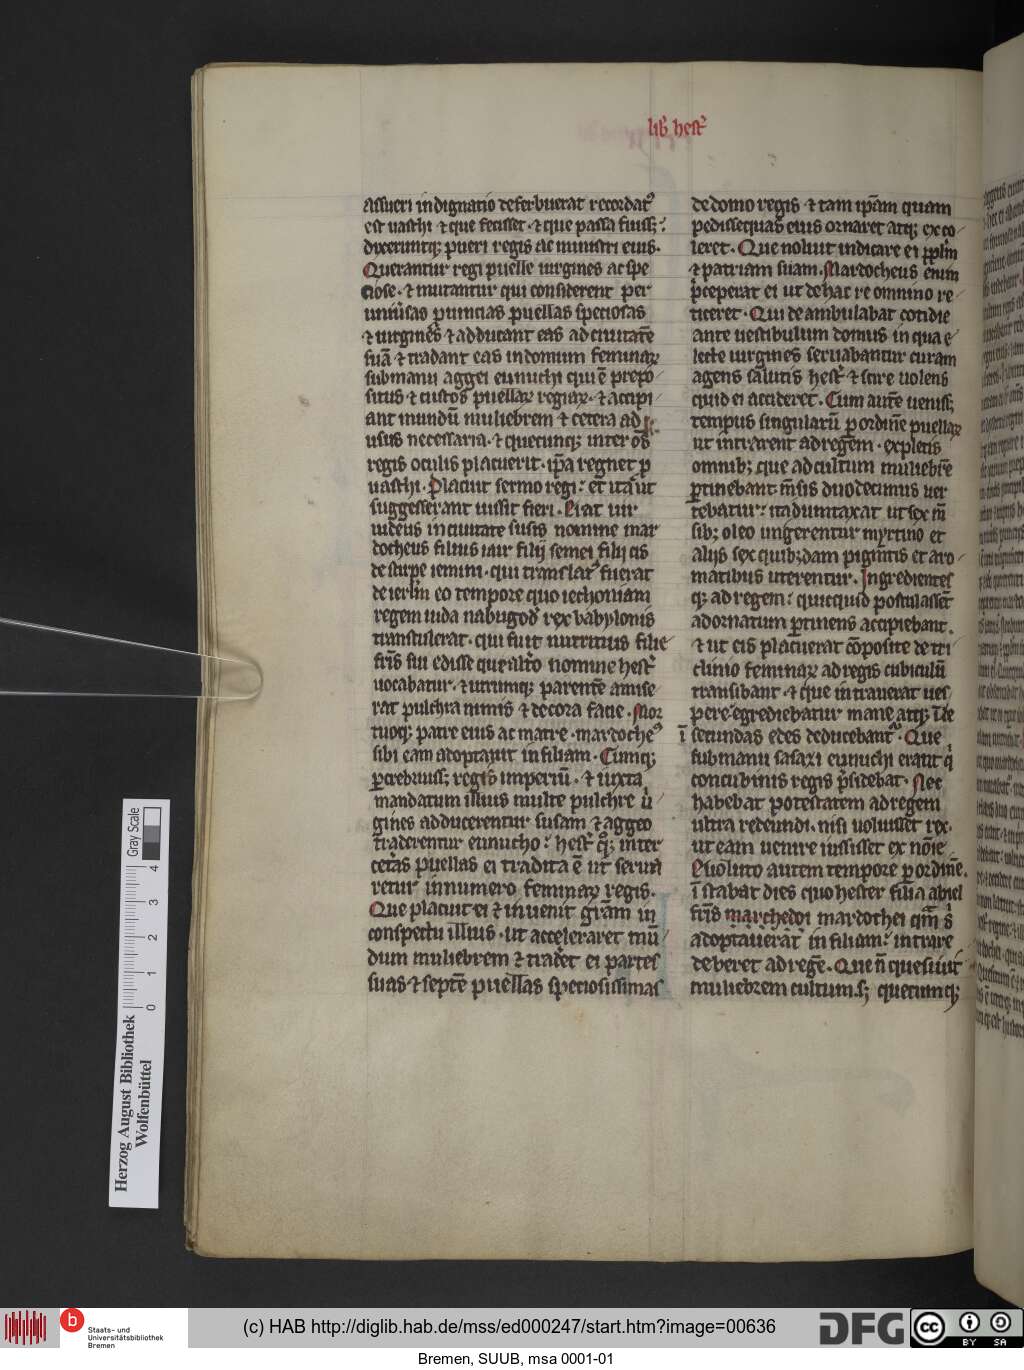 lib̄ hest̄
Assueri indignatio deferbuerat recordat᾽
est uasthi ⁊ que fecisset · ⁊ que passa fuiss;:
dixeruntq; pueri regis ac ministri eius·
Querantur regi puelle uirgines ac spe
ciose · ⁊ mittantur qui considerent per
uniūsas puincias puellas speciosas
⁊ uirgines ⁊ adducant eas ad ciuitatē
susā ⁊ tradant eas in domum feminaꝝ
sub manu aggei eunuchi qui ē prepo
situs ⁊ custos puellaꝝ regiaꝝ · ⁊ accipi
ant mundū muliebrem ⁊ cetera ad
usus necessaria · ⁊ quecunq; inter oēs
regis oculis placuerit · ip̄a regnet p
uasthi · Placuit sermo regi: et ita ut
suggesserant iussit fieri · Erat uir
iudeus in ciuitate susis nomine mar
docheus filius iair filij semei filij cis
de stirpe iemini · qui translat᾽ fuerat
de ierl̄m eo tempore quo iechoniam
regem iuda nabugod᾽ rex babylonis
transtulerat · qui fuit nutritius filie
fr̄is sui edisse que alt᾽o nomine hest̄
uocabatur · ⁊ utrumq; parentē amise
rat pulchra nimis ⁊ decora facie · Mor
tuoq; patre eius ac matre · mardoche᾽
sibi eam adoptauit in filiam · Cumq;
ꝑcrebruiss; regis imperiū · ⁊ iuxta
mandatum illius multe pulchre ū
gines adducerentur susam ⁊ aggeo
traderentur eunucho: hest̄ qq; inter
ceteras puellas ei tradita ē ut serua
retur in numero feminaꝝ regis ·
Que placuit ei ⁊ inuenit grām in
conspectu illius · ut acceleraret mū
dum muliebrem ⁊ trad᾽et ei partes
suas ⁊ septē puellas speciosissimas
de domo regis ⁊ tam ip̄am quam
pedissequas eius ornaret atq; exco
leret · Que noluit indicare ei pplm̄
⁊ patriam suam · Mardocheus enim
p̄ceperat ei ut de hac re omnino re
ticeret · Qui deambulabat cotidie
ante uestibulum domus in qua e
lecte uirgines seruabantur curam
agens salutis hest̄ ⁊ scire uolens
quid ei accideret · Cum autē ueniss;
tempus singularū ꝑ ordinē puellaꝝ
ut intrarent ad regem · expletis
omnib; que ad cultum muliebrē
ꝑtinebant m̄sis duodecimus uer
tebatur: ita dumtaxat ut sex m̄
sib; oleo ungerentur myrtino et
alijs sex quib;dam pigm̄tis et aro
matibus uterentur · Ingredientes
q; ad regem: quicquid postulassēt
ad ornatum ꝑtinens accipiebant ·
⁊ ut eis placuerat cōposite de tri
clinio feminaꝝ ad regis cubiculū
transibant · ⁊ que intrauerat ues
pere egrediebatur mane atq; īde
ī secundas edes deducebant᾽ · Que
sub manu sasazi eunuchi erant q
concubinis regis p̄sidebat · Nec
habebat potestatem ad regem
ultra redeundi · nisi uoluissēt rex ·
ut eam uenire iussisset ex noīe ·
Euoluto autem tempore ꝑ ordinē ·
ī stabat dies quo hester filia abiel
fr̄is marchedoi mardochei qm̄ s᾽
adoptauerat in filiam: intrare
deberet ad regē · Que n̄ quesiuit
muliebrem cultum · s; quecumq;
Gray Scale
4
3
2
1
0
Herzog August Bibliothek
Wolfenbüttel
b
Staats- und
Universitätsbibliothek
Bremen
(c) HAB http://diglib.hab.de/mss/ed000247/start.htm?image=00636
DFG
cc
BY SA
Bremen, SUUB, msa 0001-01